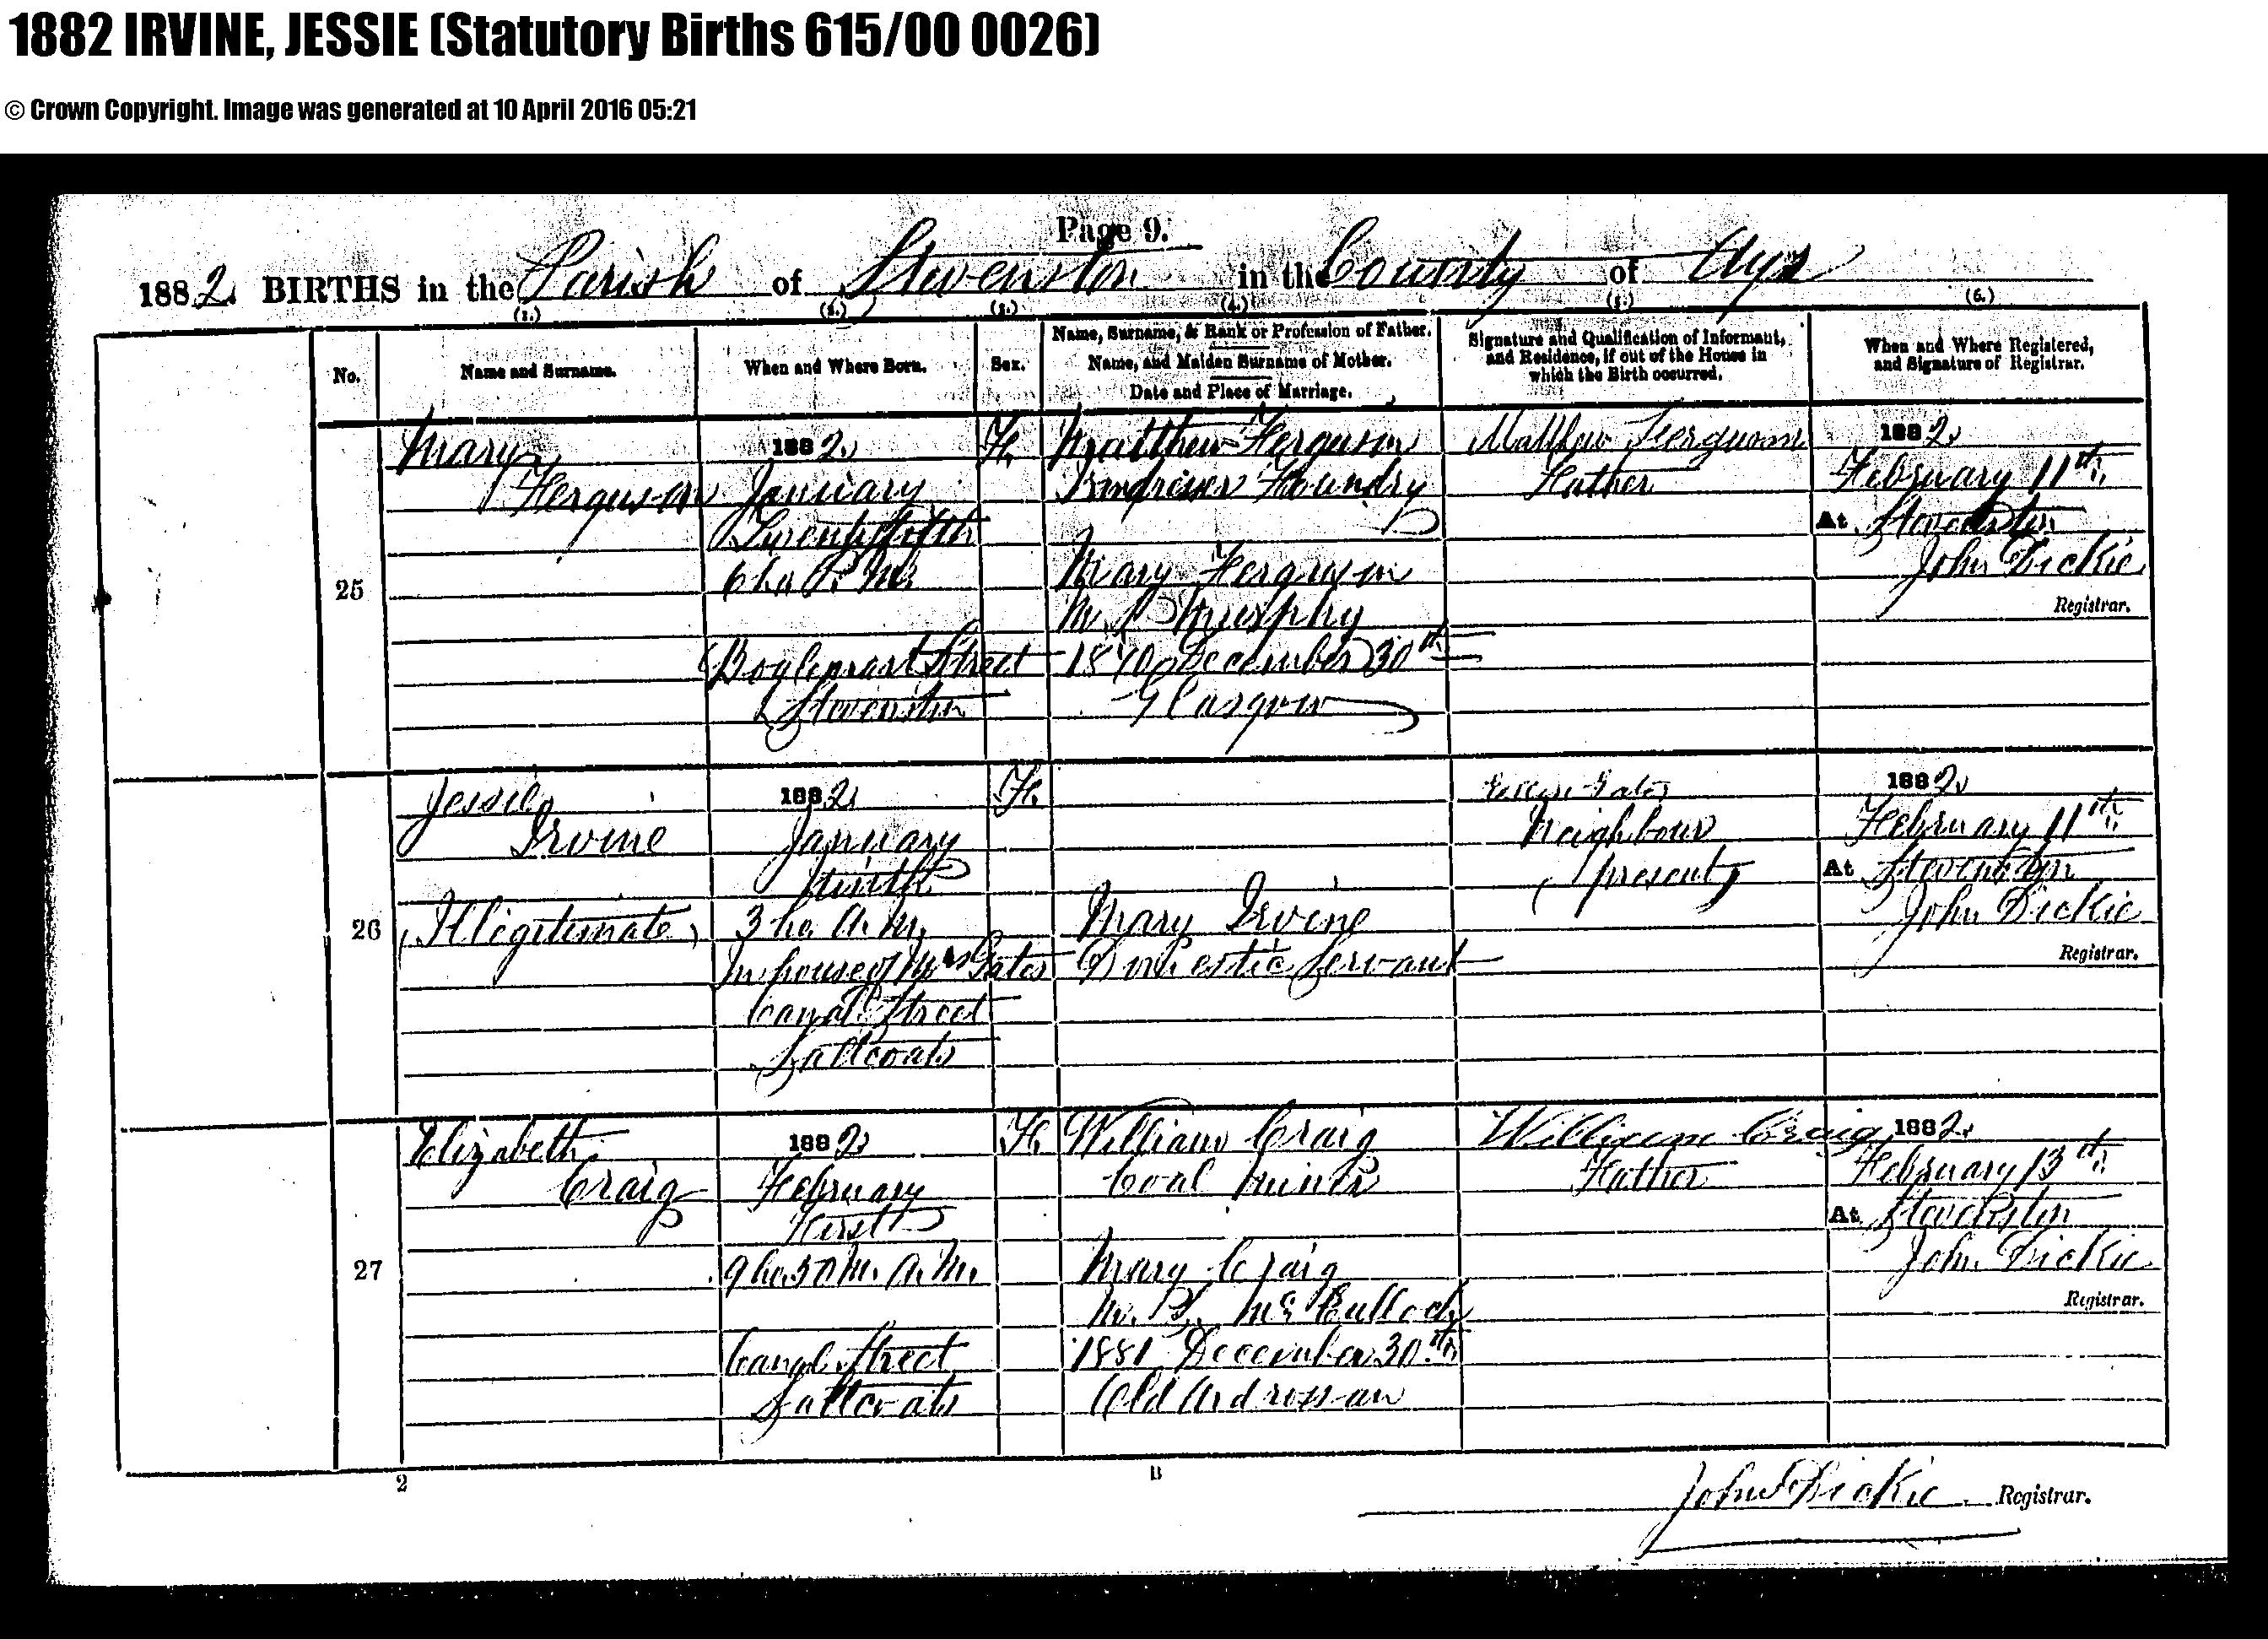 1882 IRVINE, JESSIE (Statutory Births 615/00 0026)
© Crown Copyright. Image was generated at 10 April 2016 05:21
Page 9.
1882. BIRTHS in the Parish of Stevenston in the County of Ayr
(1.) (2.) (3.) (4.) (5.) (6.)
No.
Name and Surname.
When and Where Born.
Sex.
Name, Surname, & Rank or Profession of Father.
Name, and Maiden Surname of Mother.
Date and Place of Marriage.
Signature and Qualification of Informant,
and Residence, if out of the House in
which the Birth occurred.
When and Where Registered,
and Signature of Registrar.
25
Mary
Ferguson
1882.
January
Twentyfifth
6 ho. P. M.
Street
Stevenston
F.
Matthew Ferguson
Foundry
Mary Ferguson
M. S. Murphy
December 30th
Glasgow
Matthew Ferguson
Father
1882.
February 11th.
At Stevenston
John Dickie
Registrar.
26
Jessie
Irvine
(Illegitimate)
1882.
January
3 ho. A. M.
In house of Mrs Gates
Canal Street
Saltcoats
F.
Mary Irvine
Domestic Servant
Neighbour
(present)
1882.
February 11th.
At Stevenston
John Dickie
Registrar.
27
Elizabeth
Craig
1882
February
First
9 ho. 30 M. A. M.
Canal Street
Saltcoats
F.
William Craig
Coal Miner
Mary Craig
M. S. McCulloch
1881 December 30th.
Old Ardrossan
William Craig
Father
1882.
February 13th.
At Stevenston
John Dickie
Registrar.
2
B
John Dickie. Registrar.